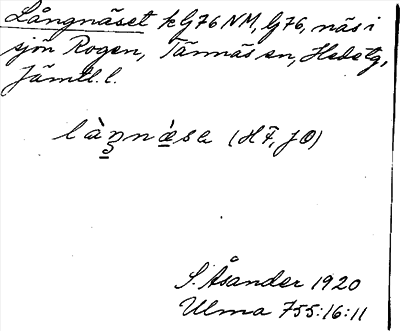 Långnäset k G76 NM, G76, näs i
sjön Rogen, Tännäs sn, Hede tg,
Jämtl. l.
làŋnæ̀sa (H F, J O)
S. Åsander 1920
Ulma 755:16:11